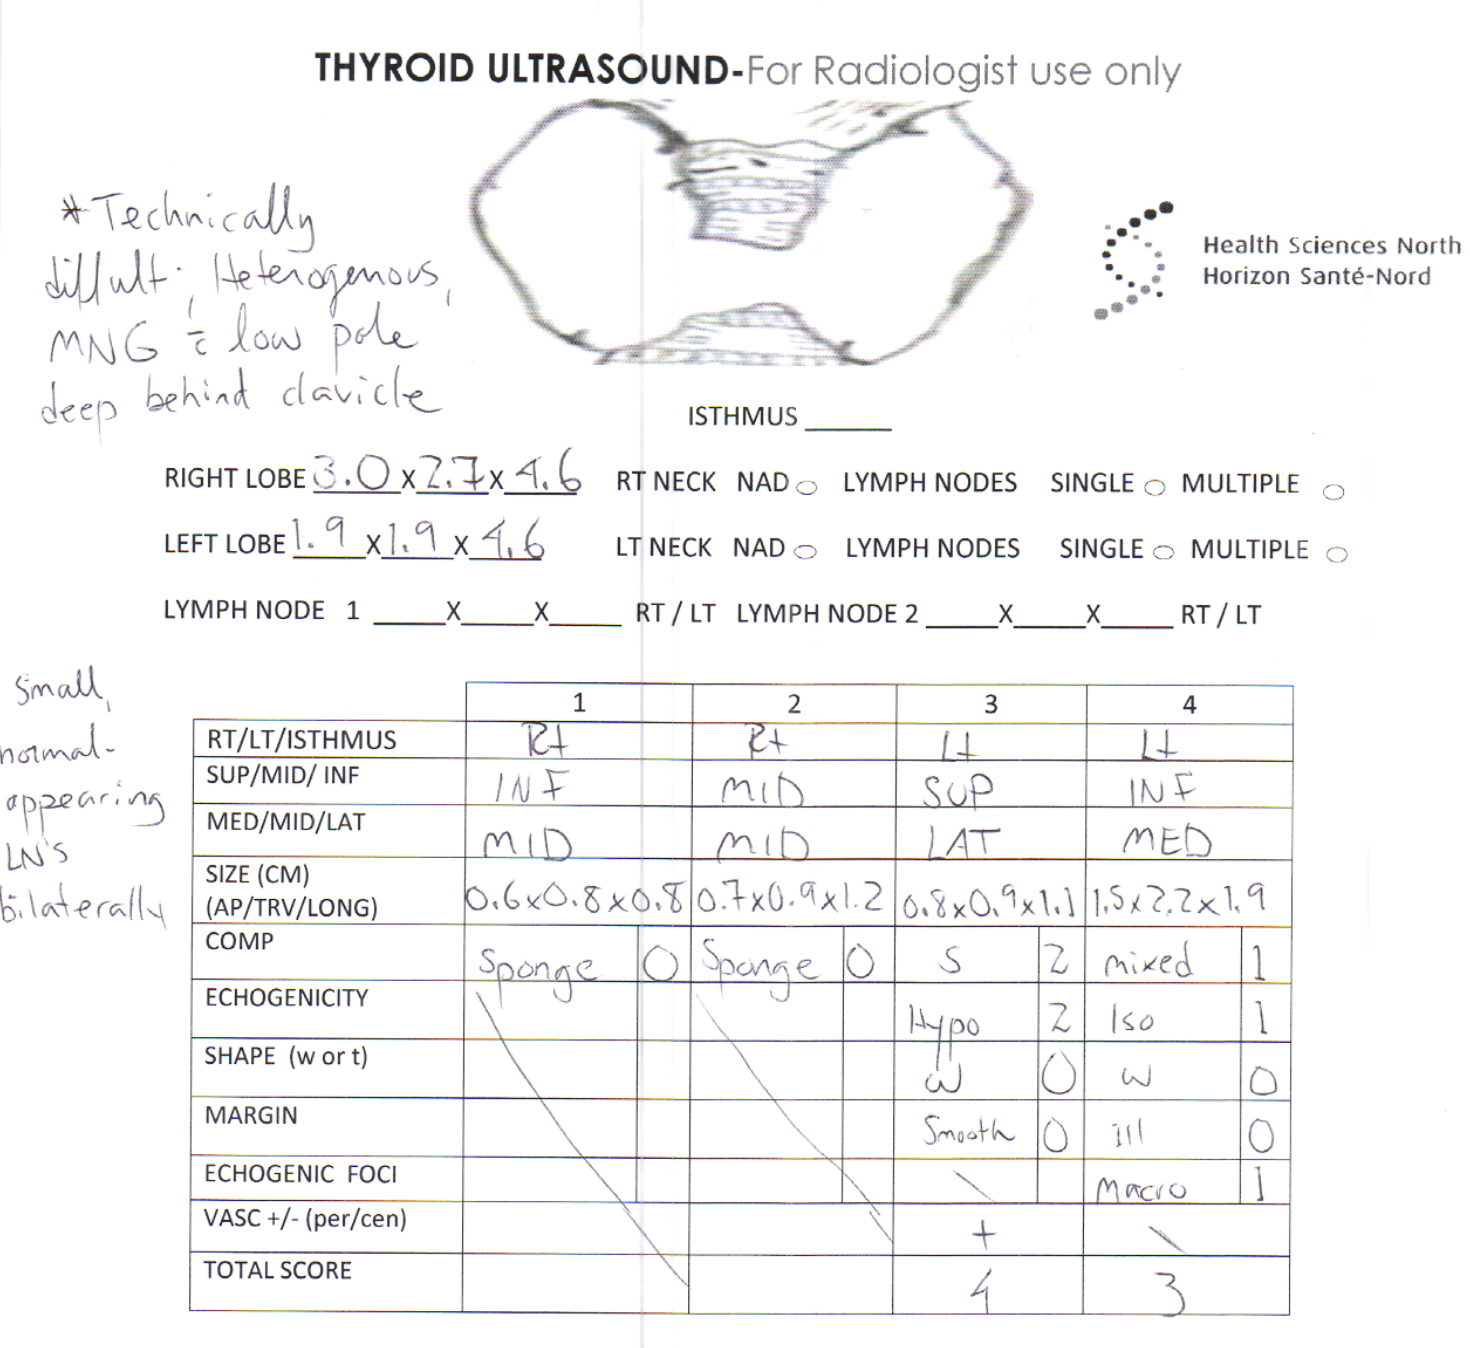 THYROID ULTRASOUND-For Radiologist use only
*Technically
diffult; Heterogenous,
MNG c̄ low pole
deep behind clavicle
Health Sciences North
Horizon Santé-Nord
ISTHMUS ______
RIGHT LOBE 3.0 x 2.7 x 4.6 RT NECK NAD ○ LYMPH NODES SINGLE ○ MULTIPLE ○
LEFT LOBE 1.9 x 1.9 x 4.6 LT NECK NAD ○ LYMPH NODES SINGLE ○ MULTIPLE ○
LYMPH NODE 1 _____X_____X_____ RT / LT LYMPH NODE 2 _____X_____X_____ RT / LT
Small,
normal-
appearing
LN's
bilaterally
1 2 3 4
RT/LT/ISTHMUS Rt Rt Lt Lt
SUP/MID/ INF INF MID SUP INF
MED/MID/LAT MID MID LAT MED
SIZE (CM)
(AP/TRV/LONG) 0.6x0.8x0.8 0.7x0.9x1.2 0.8x0.9x1.1 1.5x2.2x1.9
COMP Sponge 0 Sponge 0 S 2 mixed 1
ECHOGENICITY Hypo 2 Iso 1
SHAPE (w or t) W 0 W 0
MARGIN Smooth 0 ill 0
ECHOGENIC FOCI \ Macro 1
VASC +/- (per/cen) + \
TOTAL SCORE 4 3